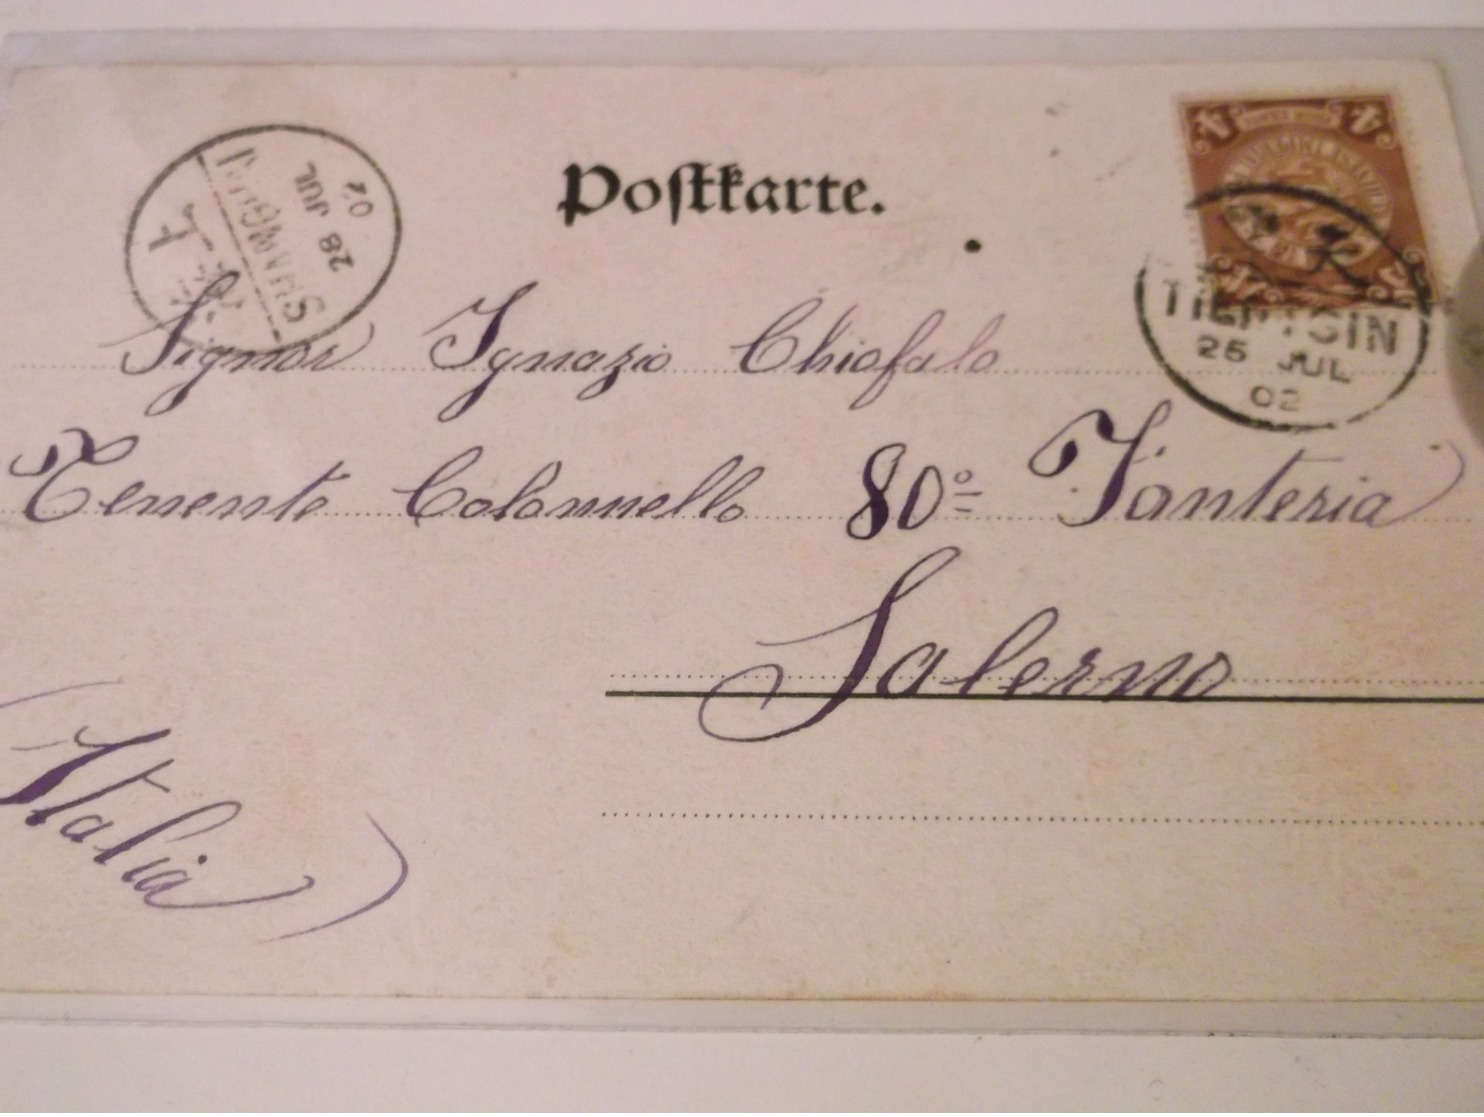 Postkarte.
4 4
TIENTSIN
25 JUL
02
SHANGHAI
28 JUL
02
Signor Ignazio Chiofalo
Tenente Colonnello 80º Fanteria
Salerno
(Italia)